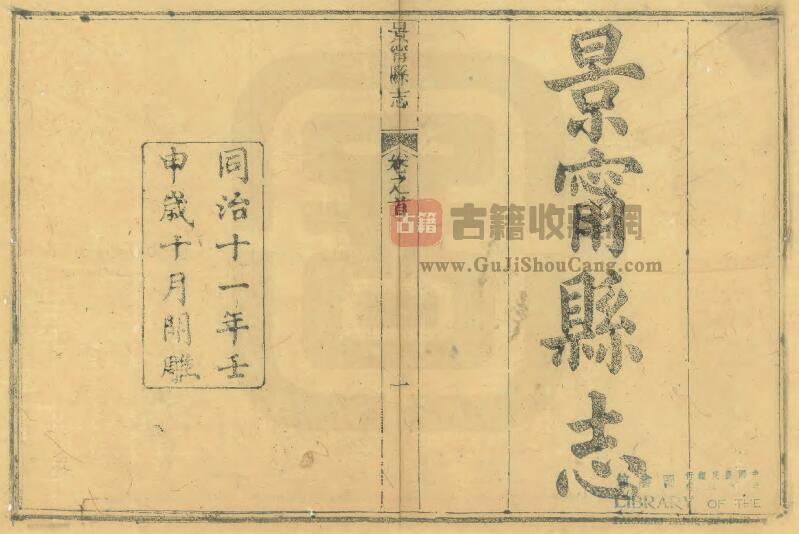 景甯縣志
景甯縣志
卷之首
一
同治十一年壬
申歲十月開雕
古籍
古籍收藏網
www.GuJiShouCang.com
LIBRARY OF THE